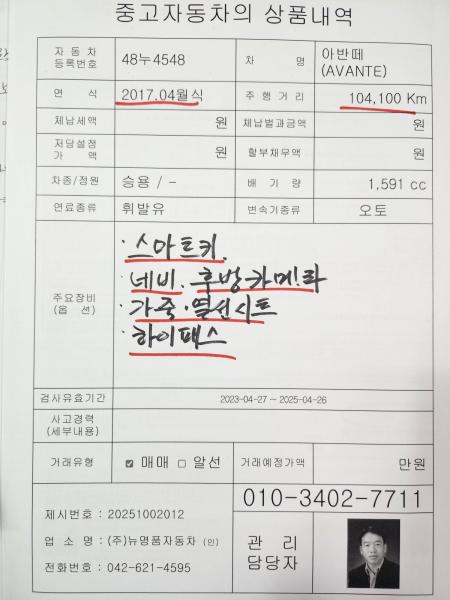 중고자동차의 상품내역
자 동 차 등록번호 48누4548 차 명 아반떼 (AVANTE)
연 식 2017.04월식 주 행 거 리 104,100 Km
체납세액 원 체납벌과금액 원
저당설정 가 액 원 할부채무액 원
차종/정원 승용 / - 배 기 량 1,591 cc
연료종류 휘발유 변속기종류 오토
주요장비 (옵 션)
· 스마트키.
네비. 후방카메라
· 가죽·열선시트
· 하이패스
검사유효기간 2023-04-27 ~ 2025-04-26
사고경력 (세부내용)
거래유형 ☑ 매매 □ 알선 거래예정가액 만원
제시번호 : 20251002012
업 소 명 : (주)뉴명품자동차 (인)
전화번호 : 042-621-4595
010-3402-7711
관 리
담당자